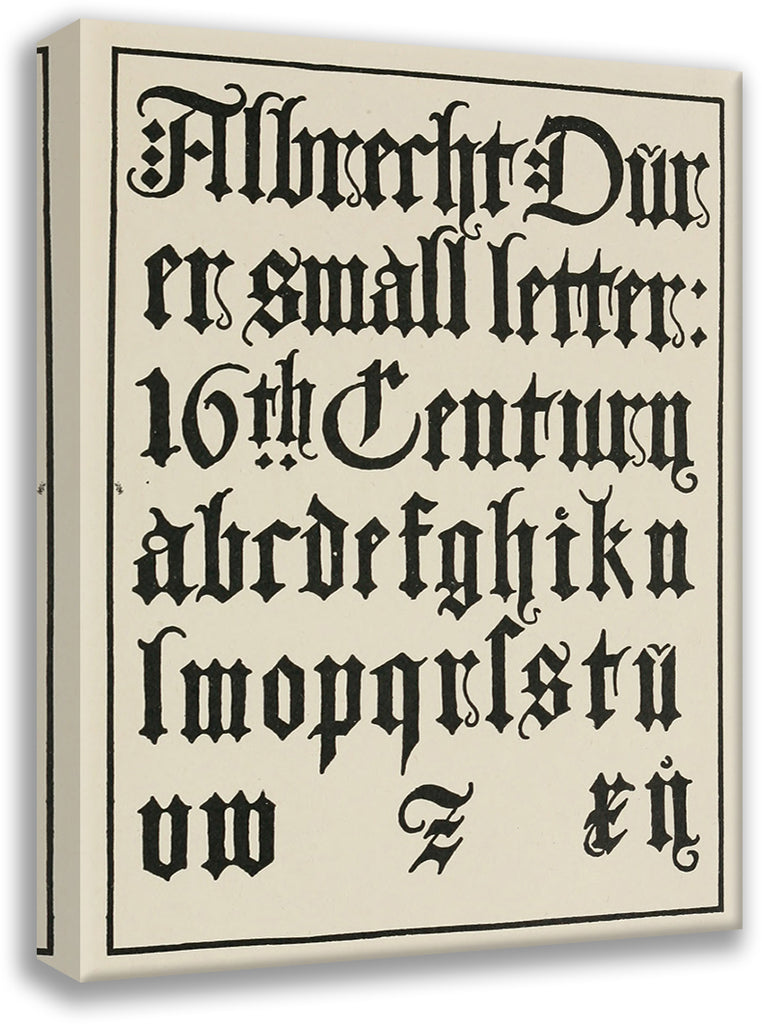 :Albrecht:Dür
er small letter:
16th Century
abcdefghikn
lmopqrſstŭ
vw z xẙ